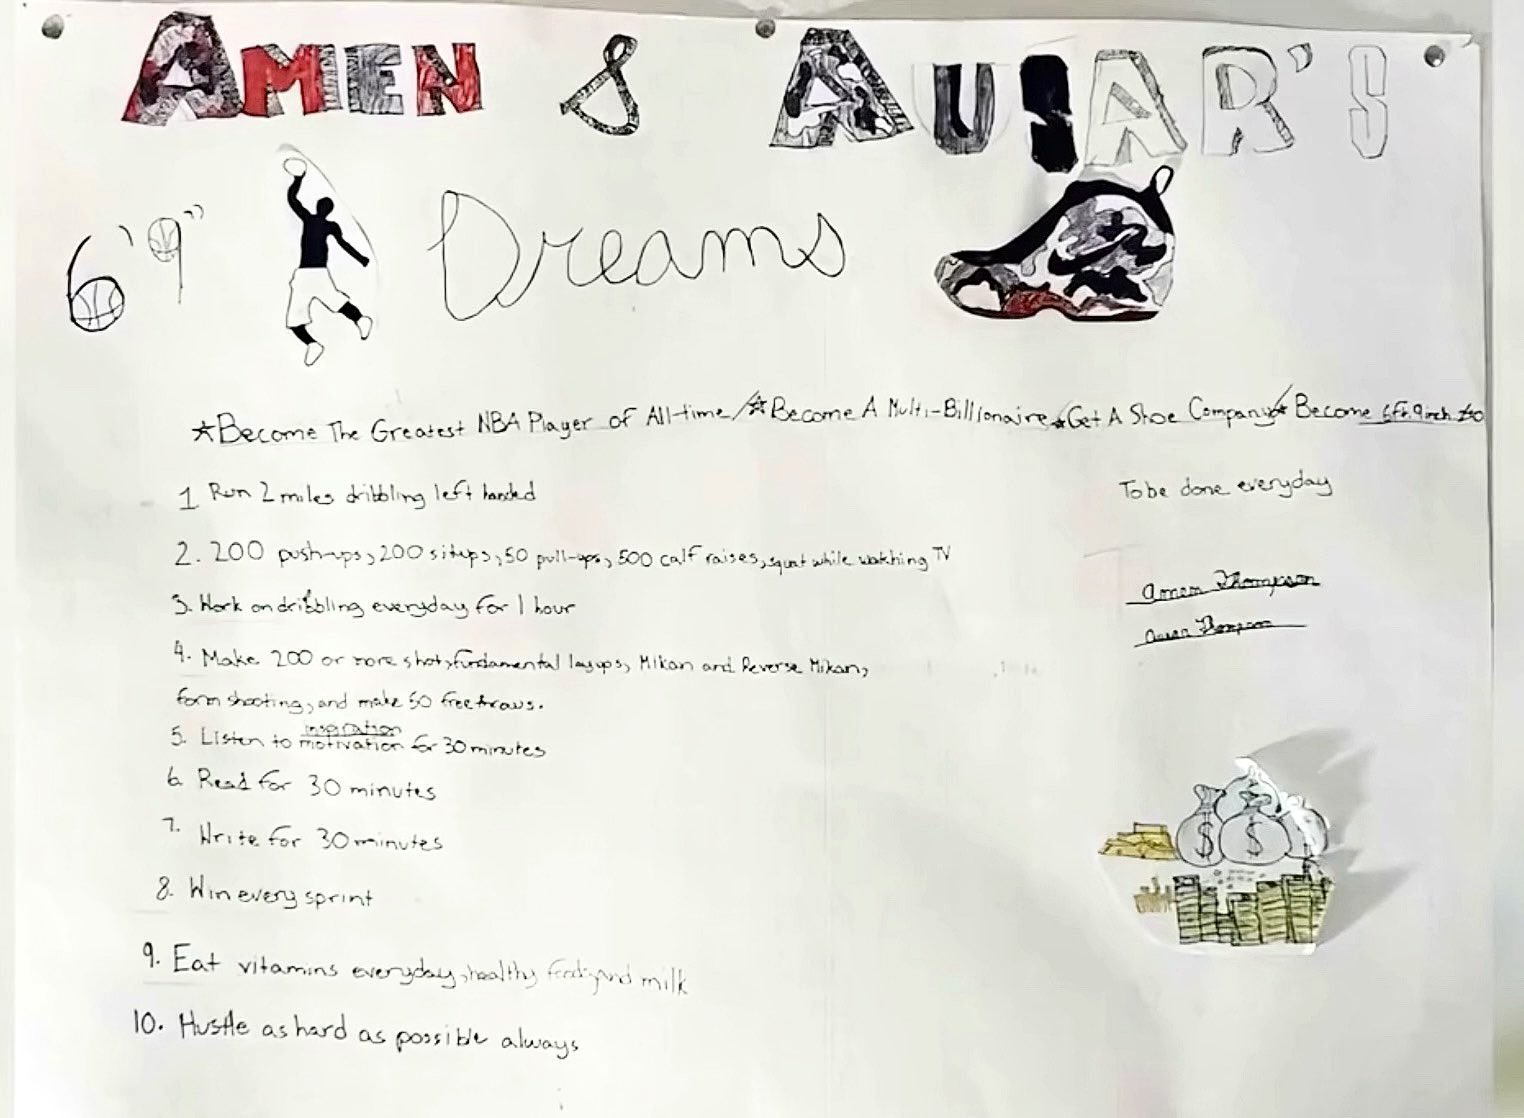 AMEN & AUSAR'S
6'9"
Dreams
☆Become The Greatest NBA Player of All-time/☆Become A Multi-Billionaire☆Get A Shoe Company☆Become 6ft. 9inch
1 Run 2 miles dribbling left handed
To be done everyday
2. 200 push-ups, 200 situps, 50 pull-ups, 500 calf raises, squat while watching TV
3. Work on dribbling everyday for 1 hour
Amen Thompson
Ausar Thompson
4. Make 200 or more shots, fundamental layups, Mikan and Reverse Mikan,
form shooting, and make 50 freethraws.
inspiration
5. Listen to motivation for 30 minutes
6. Read for 30 minutes
7. Write for 30 minutes
8. Win every sprint
9. Eat vitamins everyday, healthy food, and milk
10. Hustle as hard as possible always
$ $